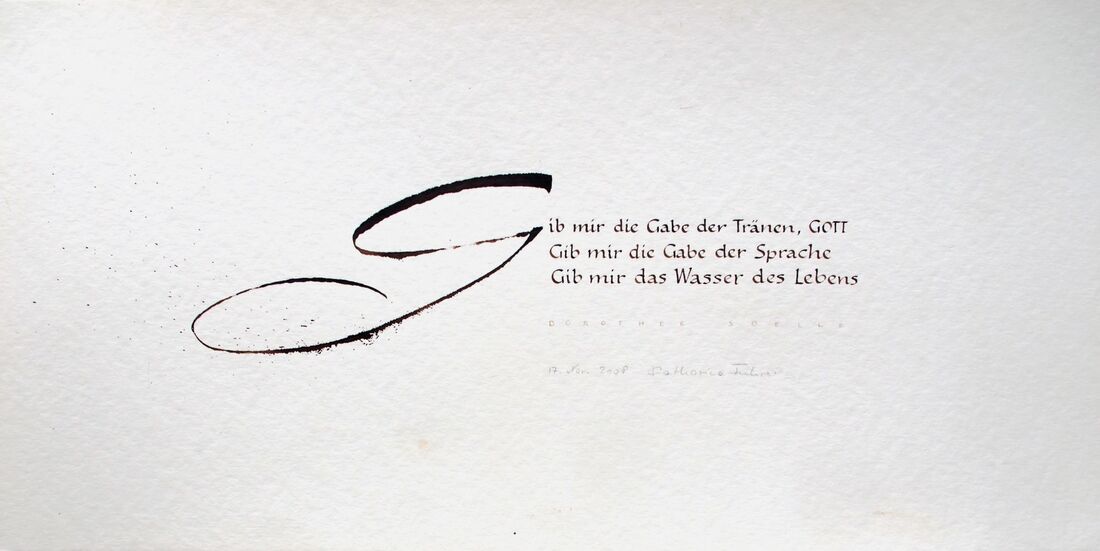 Gib mir die Gabe der Tränen, GOTT
Gib mir die Gabe der Sprache
Gib mir das Wasser des Lebens
DOROTHEE SOELLE
17. Nov. 2008